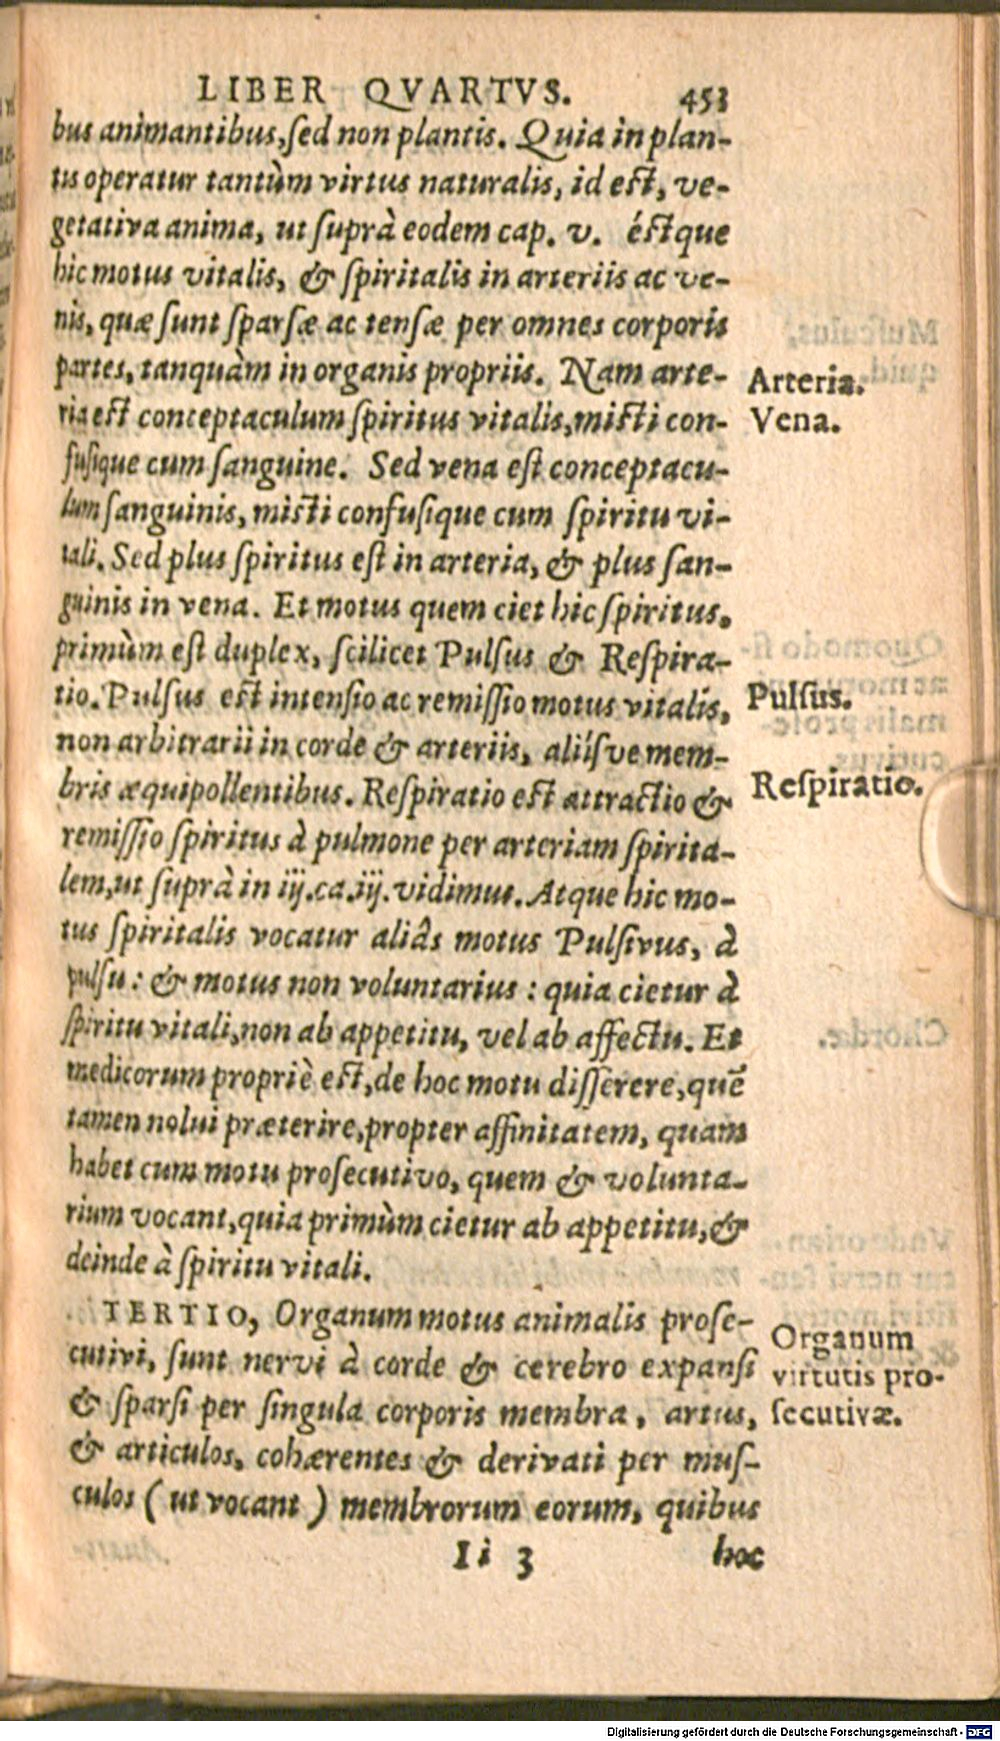 LIBER QVARTVS. 453
bus animantibus, sed non plantis. Quia in plan-
tis operatur tantùm virtus naturalis, id est, ve-
getativa anima, ut suprà eodem cap. v. éstque
hic motus vitalis, & spiritalis in arteriis ac ve-
nis, quæ sunt sparsæ ac tensæ per omnes corporis
partes, tanquàm in organis propriis. Nam arte-
ria est conceptaculum spiritus vitalis, misti con-
fusique cum sanguine. Sed vena est conceptacu-
lum sanguinis, misti confusique cum spiritu vi-
tali. Sed plus spiritus est in arteria, & plus san-
guinis in vena. Et motus quem ciet hic spiritus,
primùm est duplex, scilicet Pulsus & Respira-
tio. Pulsus est intensio ac remissio motus vitalis,
non arbitrarii in corde & arteriis, aliisve mem-
bris æquipollentibus. Respiratio est attractio &
remissio spiritus à pulmone per arteriam spirita-
lem, ut suprà in iij. ca. iij. vidimus. Atque hic mo-
tus spiritalis vocatur aliâs motus Pulsivus, à
pulsu: & motus non voluntarius: quia cietur à
spiritu vitali, non ab appetitu, vel ab affectu. Et
medicorum propriè est, de hoc motu disserere, quē
tamen nolui præterire, propter affinitatem, quam
habet cum motu prosecutivo, quem & volunta-
rium vocant, quia primùm cietur ab appetitu, &
deinde à spiritu vitali.
TERTIO, Organum motus animalis prose-
cutivi, sunt nervi à corde & cerebro expansi
& sparsi per singula corporis membra, artus,
& articulos, cohærentes & derivati per mus-
culos (ut vocant) membrorum eorum, quibus
Ii 3 hoc
Arteria.
Vena.
Pulsus.
Respiratio.
Organum
virtutis pro-
secutivæ.
Digitalisierung gefördert durch die Deutsche Forschungsgemeinschaft - DFG